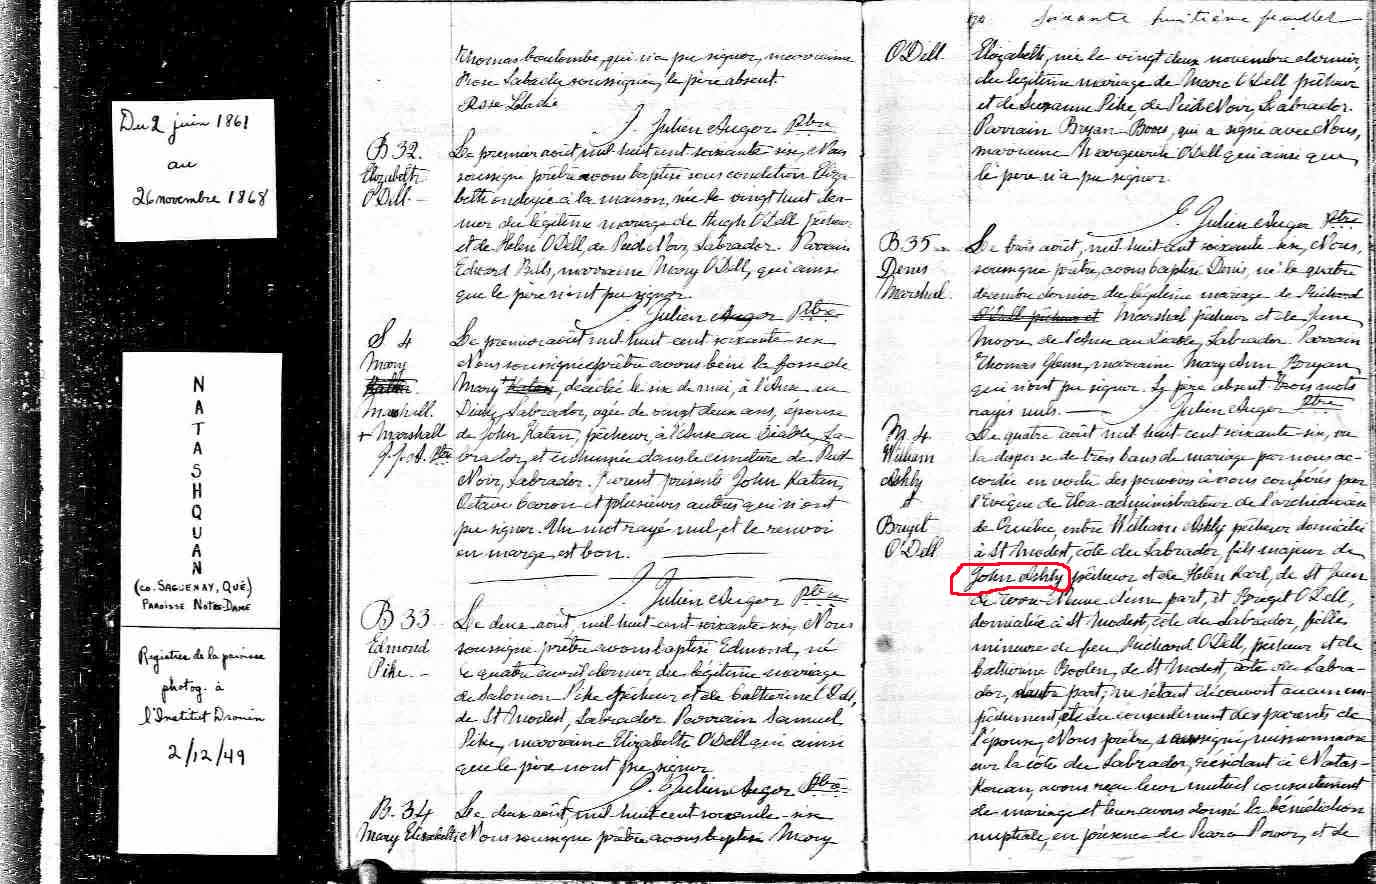 Du 2 juin 1861
au
26 novembre 1868
NATASHQUAN
(CO. SAGUENAY, QUÉ.)
PAROISSE NOTRE-DAME
Registres de la paroisse
photog. à
l'Institut Drouin
2/12/49
Thomas boulombe, qui n'a pu signer, marraine
Rose Labadie soussignée, le père absent.
Rose Labadie
J. Julien Auger Ptre
B 32.
Elizabeth
O'Dell.
Le premier août mil huit cent soixante-six, Nous
soussigné prêtre avons baptisé sous condition Eliza-
beth ondoyée à la maison, née le vingt huit der-
nier du légitime mariage de Hugh O'Dell pêcheur
et de Helen O'Dell, de Pied Noir, Labrador. Parrain
Edward Buls, marraine Mary O'Dell, qui ainsi
que le père n'ont pu signer.
Julien Auger Ptre
S 4
Mary
Marshall.
+ Marshall
J. J. A. Ptre
Le premier août mil huit cent soixante-six
Nous soussigné prêtre avons béni la fosse de
Mary Katan, décédée le six de mai, à l'Anse au
Diable, Labrador, agée de vingt deux ans, épouse
de John Katan, pêcheur, à l'Anse au Diable, La-
brador, et enhumée dans le cimetière de Pied
Noir, Labrador. Furent présents John Katan,
Octave baron et plusieurs autres qui n'ont
pu signer. Un mot rayé nul et le renvoi
en marge est bon.
J. Julien Auger Ptre
B 33
Edmond
Pike.
Le deux août, mil huit-cent soixante-six, Nous
soussigné prêtre avons baptisé Edmond, né
le quatre avril dernier du légitime mariage
de Salomon Pike pêcheur et de Catherine O'Dell,
de St Modest, Labrador. Parrain Samuel
Pike, marraine Elizabeth O'Dell qui ainsi
que le père n'ont pu signer
J. Julien Auger Ptre
B. 34
Mary Elizabeth
Le deux août, mil huit cent soixante-six
Nous soussigné prêtre avons baptisé Mary
soixante huitième feuillet
O'Dell.
Elizabeth, née le vingt deux novembre dernier,
du légitime mariage de Marc O'Dell pêcheur
et de Suzanne Pike, de Pied Noir, Labrador.
Parrain Bryan Boves, qui a signé avec Nous,
marraine Marguerite O'Dell qui ainsi que
le père n'a pu signer.
J. Julien Auger Ptre
B 35
Denis
Marshal.
Le trois août, mil huit cent soixante-six, Nous,
soussigné prêtre, avons baptisé Denis, né le quatre
décembre dernier du légitime mariage de Richard
O'Dell pêcheur et Marshal pêcheur et de Jane
Moore de l'Anse au Diable, Labrador. Parrain
Thomas Glenn, marraine Mary Ann Bryan
qui n'ont pu signer. Le père absent. Trois mots
rayés nuls.
Julien Auger Ptre
M. 4
William
Ashly
et
Brugit
O'Dell
Le quatre août mil huit-cent soixante-six, vu
la dispense de trois bans de mariage par nous ac-
cordée en vertu des pouvoirs à nous conférés par
l'Evêque de Tloa administrateur de l'archidiocèse
de Québec, entre William Ashly pêcheur domicilié
à St Modest, côte du Labrador, fils majeur de
John Ashly pêcheur et de Helen Karl, de St Jean
de Terre-Neuve d'une part, et Brugit O'Dell,
domiciliée à St Modest, côte du Labrador, filles
mineure de feu Richard O'Dell, pêcheur et de
Catherine Boolen, de St Modest, côte du Labra-
dor, d'autre part; ne s'étant découvert aucun em-
pêchement, et du consentement des parents de
l'épouse, Nous prêtre, soussigné, missionnaire
sur la côte du Labrador, résidant à Natas-
kouan, avons reçu leur mutuel consentement
de mariage et leur avons donné la bénédiction
nuptiale, en présence de Peare Power, et de